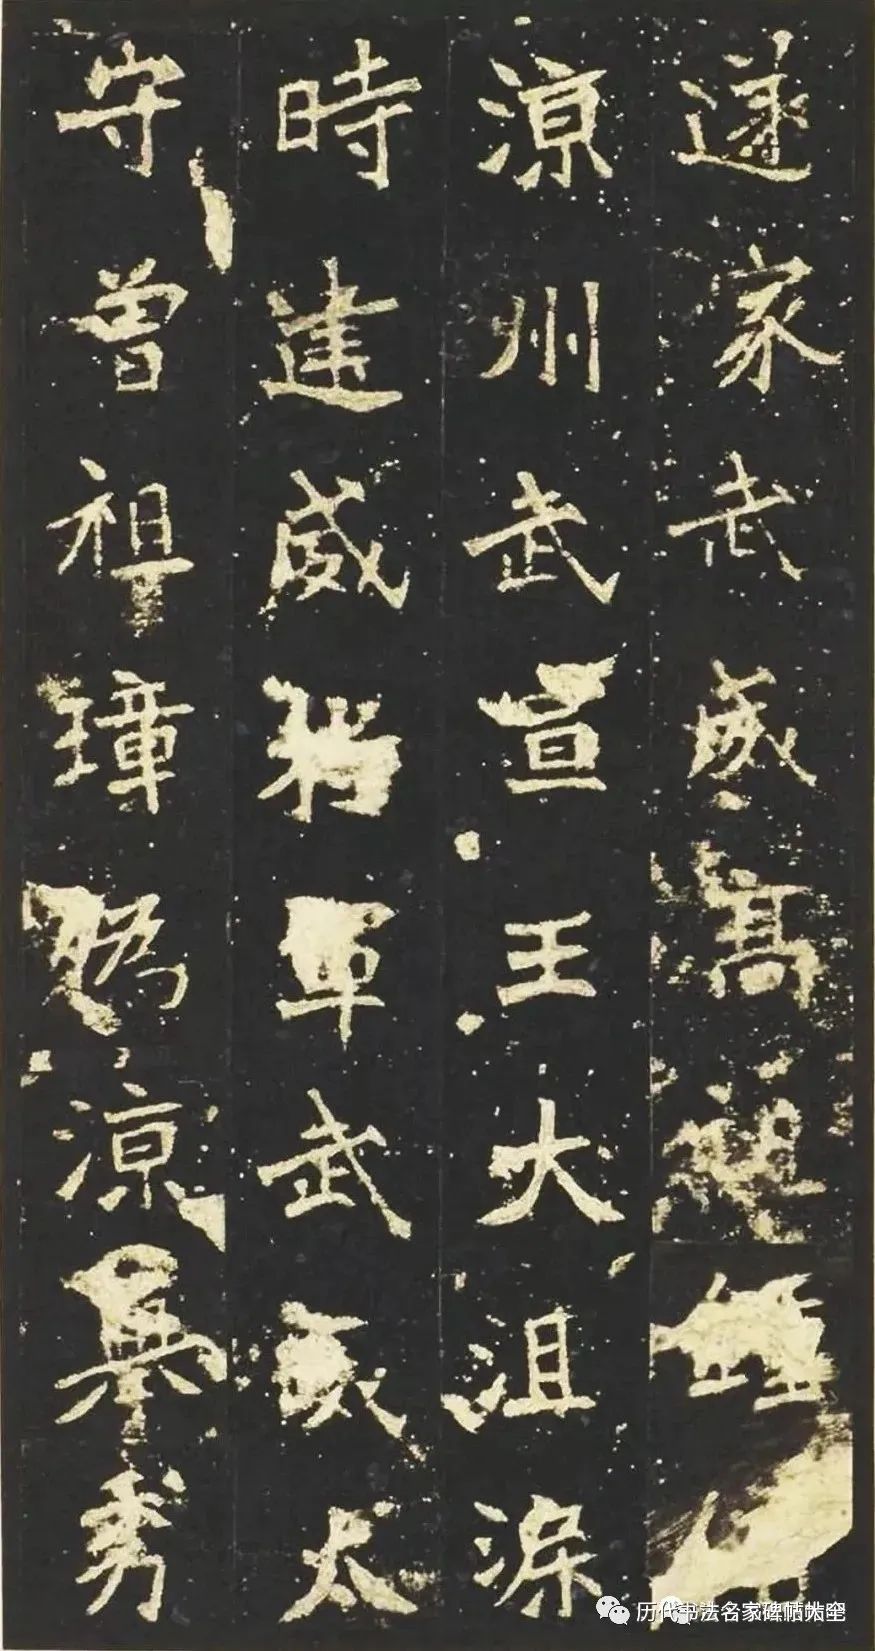 遂家武威高祖鍾
涼州武宣王大沮渠
時建威將軍武威太
守曾祖璋偽涼舉秀
历代书法名家碑帖大全